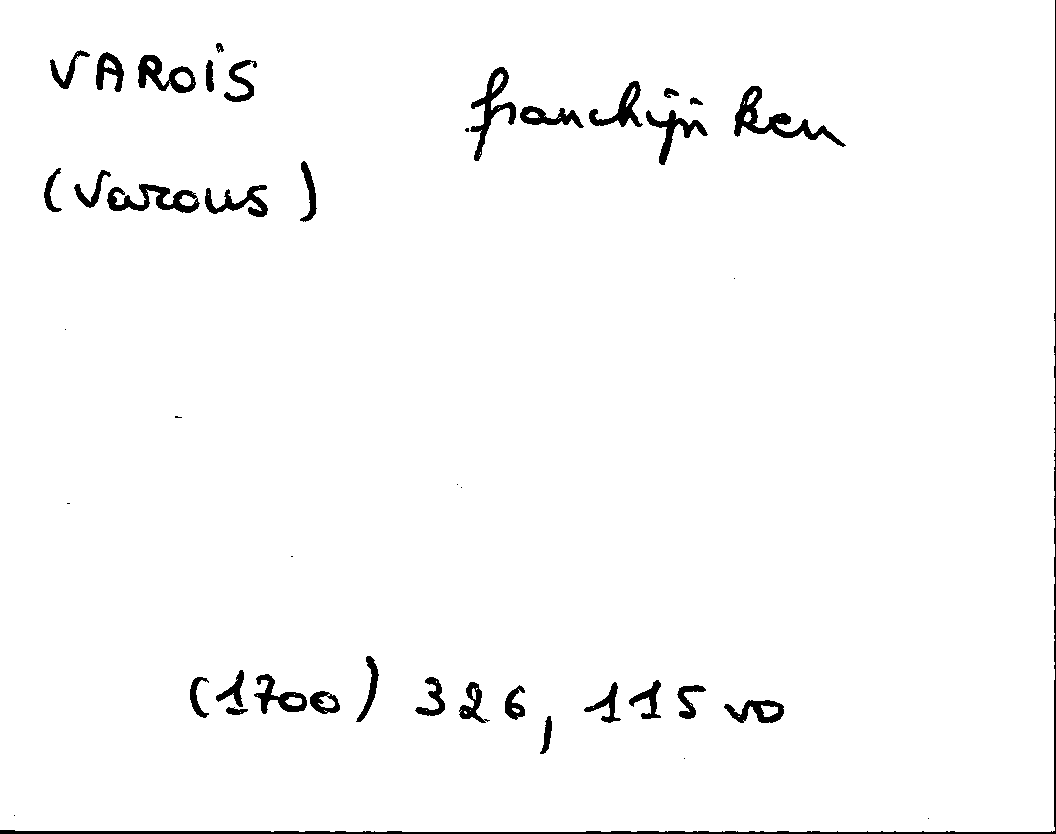 VAROIS
franchijn ken
(Varous)
(1700) 326, 115 vo